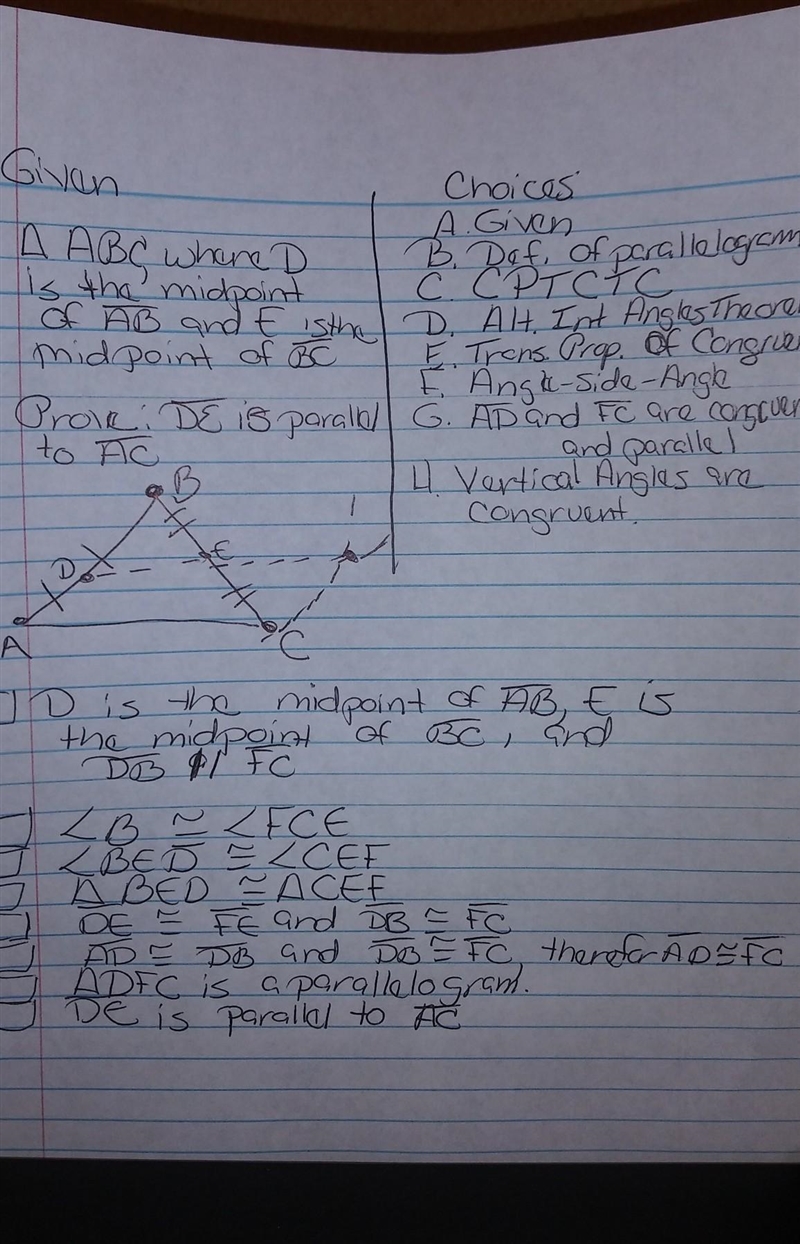 Given
Δ ABC, where D
is the midpoint
of AB and E is the
midpoint of BC
Prove: DE is parallel
to AC
Choices
A. Given
B. Def. of parallelogram
C. CPTCTC
D. Alt. Int Angles Theore
E. Trans. Prop. Of Congrue
F. Angle-Side-Angle
G. AD and FC are congruen
and parallel
H. Vertical Angles are
congruent.
B
D
E
A
C
D is the midpoint of AB, E is
the midpoint of BC, and
DB // FC
∠B ≅ ∠FCE
∠BED ≅ ∠CEF
Δ BED ≅ ΔCEF
DE ≅ FE and DB ≅ FC
AD ≅ DB and DB ≅ FC, therefor AD ≅ FC
ADFC is a parallelogram.
DE is parallel to AC